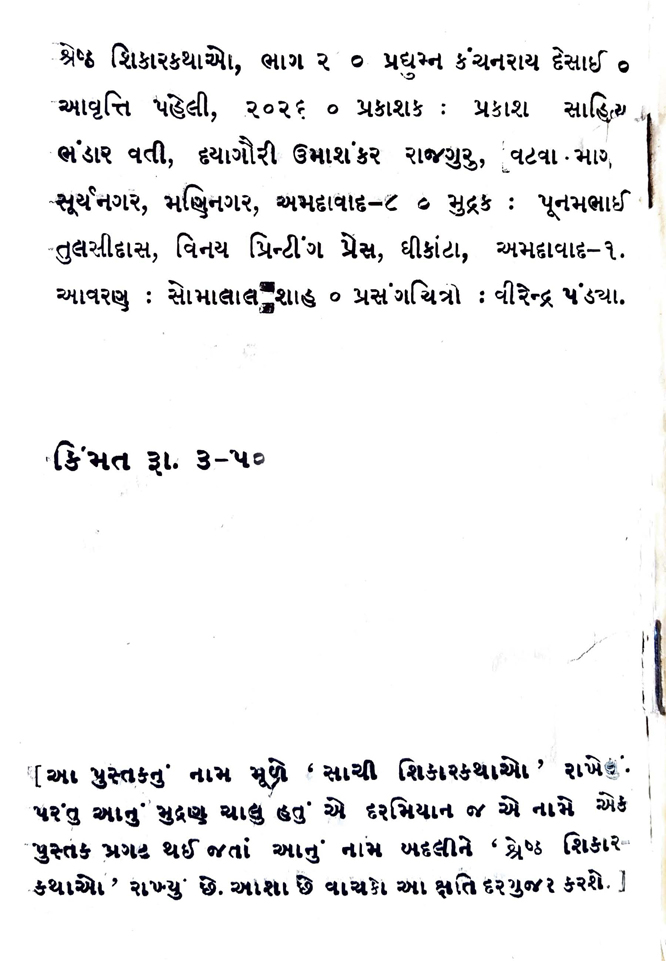 શ્રેષ્ઠ શિકારકથાઓ, ભાગ ૨ ૦ પ્રદ્યુમ્ન કંચનરાય દેસાઈ ૦
આવૃત્તિ પહેલી, ૨૦૨૬ ૦ પ્રકાશક : પ્રકાશ સાહિત્ય
ભંડાર વતી, દયાગૌરી ઉમાશંકર રાજગુરુ, વટવા માગ
સૂર્યનગર, મણિનગર, અમદાવાદ-૮ ૦ મુદ્રક : પૂનમભાઈ
તુલસીદાસ, વિનય પ્રિન્ટીંગ પ્રેસ, ઘીકાંટા, અમદાવાદ-૧.
આવરણ : સોમાલાલ શાહ ૦ પ્રસંગચિત્રો : વીરેન્દ્ર પંડ્યા.
કિંમત રૂા. ૩-૫૦
[આ પુસ્તકનું નામ મૂળે ‘સાચી શિકારકથાઓ’ રાખેલું.
પરંતુ આનું મુદ્રણ ચાલુ હતું એ દરમિયાન જ એ નામે એક
પુસ્તક પ્રગટ થઈ જતાં આનું નામ બદલીને ‘શ્રેષ્ઠ શિકાર-
કથાઓ’ રાખ્યું છે. આશા છે વાચકો આ ક્ષતિ દરગુજર કરશે.]